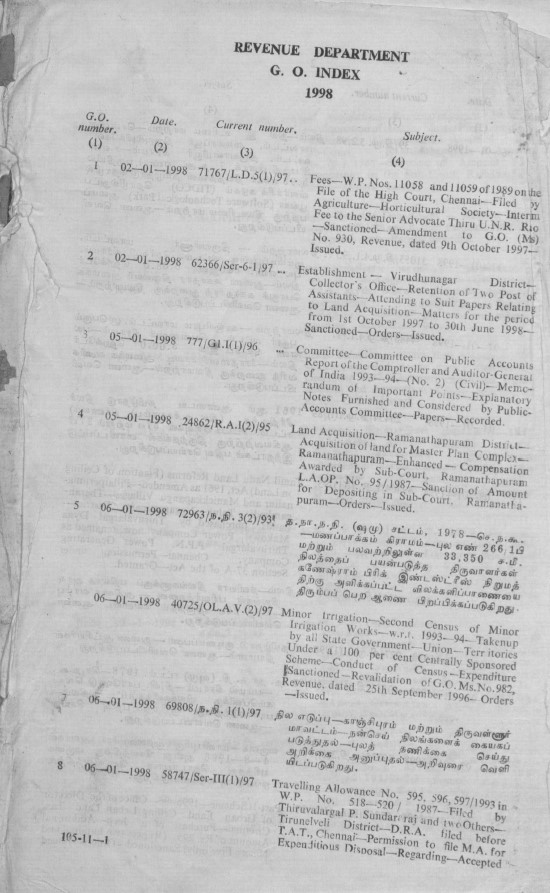 REVENUE DEPARTMENT
G. O. INDEX
1998
G.O. number. Date. Current number. Subject.
(1) (2) (3) (4)
1 02—01—1998 71767/L.D.5(1)/97.. Fees—W.P. Nos. 11058 and 11059 of 1989 on the
File of the High Court, Chennai—Filed by
Agriculture—Horticultural Society—Interm
Fee to the Senior Advocate Thiru U.N.R. Rio
—Sanctioned—Amendment to G.O. (Ms)
No. 930, Revenue, dated 9th October 1997—
Issued.
2 02—01—1998 62366/Ser-6-1/97 ... Establishment — Virudhunagar District—
Collector's Office—Retention of Two Post of
Assistants—Attending to Suit Papers Relating
to Land Acquisition—Matters for the period
from 1st October 1997 to 30th June 1998—
Sanctioned—Orders—Issued.
3 05—01—1998 777/G1.I(1)/96 ... Committee—Committee on Public Accounts
Report of the Comptroller and Auditor-General
of India 1993—94—(No. 2) (Civil)—Memo-
randum of Important Points—Explanatory
Notes Furnished and Considered by Public-
Accounts Committee—Papers—Recorded.
4 05—01—1998 24862/R.A.I(2)/95 Land Acquisition—Ramanathapuram District—
Acquisition of land for Master Plan Complex—
Ramanathapuram—Enhanced — Compensation
Awarded by Sub-Court, Ramanathapuram
L.A.OP, No. 95/1987—Sanction of Amount
for Depositing in Sub-Court, Ramanatha-
puram—Orders—Issued.
5 06—01—1998 72963/ந.நி. 3(2)/93 த.நா.ந.நி. (ஷமு) சட்டம், 1978—செ.ந.கூ.
—மணப்பாக்கம் கிராமம்—புல எண் 266/1பி
மற்றும் பலவற்றிலுள்ள 33,350 ச.மீ.
நிலத்தைப் பயன்படுத்த திருவாளர்கள்
கணேஷ்ராம் பிரிக் இண்டஸ்ட்ரீஸ் நிறுமத்
திற்கு அளிக்கப்பட்ட விலக்களிப்பாணையை
திரும்பப் பெற ஆணை பிறப்பிக்கப்படுகிறது.
06—01—1998 40725/OL.A.V.(2)/97 Minor Irrigation—Second Census of Minor
Irrigation Works—w.r.t. 1993—94—Takenup
by all State Government—Union—Territories
Under a 100 per cent Centrally Sponsored
Scheme—Conduct of Census—Expenditure
Sanctioned—Revalidation of G.O. Ms.No.982,
Revenue, dated 25th September 1996—Orders
—Issued.
7 06—01—1998 69808/ந.நி. 1(1)/97 நில எடுப்பு—காஞ்சிபுரம் மற்றும் திருவள்ளூர்
மாவட்டம்—நன்செய் நிலங்களைக் கையகப்
படுத்துதல்—புலத் தணிக்கை செய்து
அறிக்கை அனுப்புதல்—அறிவுரை வெளி
யிடப்படுகிறது.
8 06—01—1998 58747/Ser-III(1)/97 Travelling Allowance No. 595, 596, 597/1993 in
W.P. No. 518—520/ 1987—Filed by
Thiruvalargal P. Sundarraj and two Others—
Tirunelveli District—D.R.A. filed before
T.A.T., Chennai—Permission to file M.A. for
Expenditious Disposal—Regarding—Accepted
105-11—1